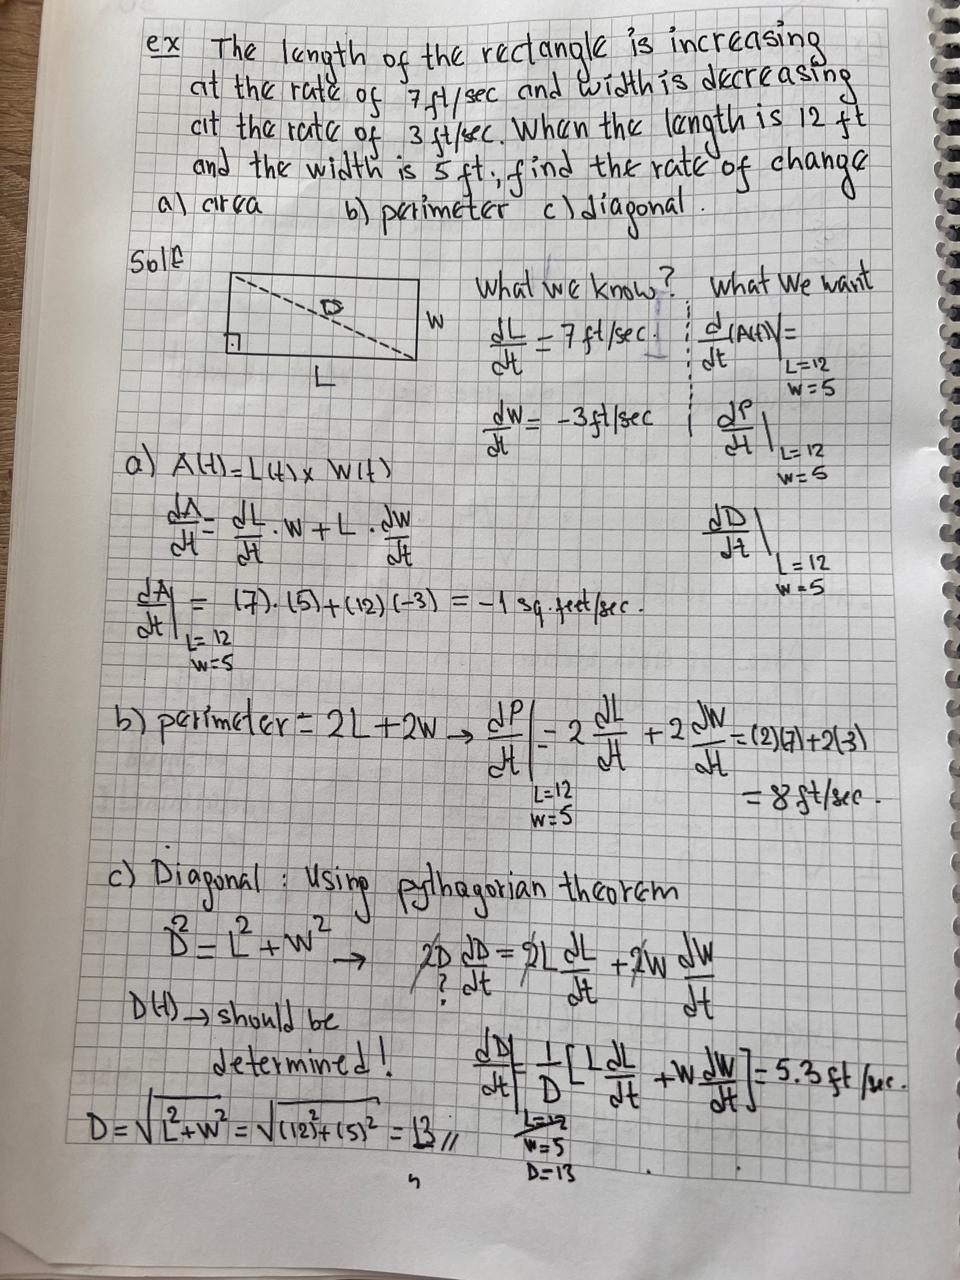 ex The length of the rectangle is increasing
at the rate of 7 ft/sec and width is decreasing
at the rate of 3 ft/sec. When the length is 12 ft
and the width is 5 ft, find the rate of change
a) area b) perimeter c) diagonal.
Soln
D
W
L
What we know? What we want
dL/dt = 7 ft/sec. d/dt (A(t))| = L=12 W=5
dW/dt = -3 ft/sec dP/dt | L=12 W=5
dD/dt | L=12 W=5
a) A(t) = L(t) x W(t)
dA/dt = dL/dt · W + L · dW/dt
dA/dt | L=12 W=5 = (7)·(5)+(12)(-3) = -1 sq.feet/sec.
b) perimeter = 2L+2W → dP/dt | L=12 W=5 = 2 dL/dt + 2 dW/dt = (2)(7)+2(-3)
= 8 ft/sec.
c) Diagonal : Using pythagorian theorem
D² = L² + W² → 2D dD/dt = 2L dL/dt + 2W dW/dt
?
D(t) → should be
determined!
dD/dt | L=12 W=5 D=13 = 1/D [L dL/dt + W dW/dt] = 5.3 ft/sec.
D = √L²+W² = √(12)²+(5)² = 13 //